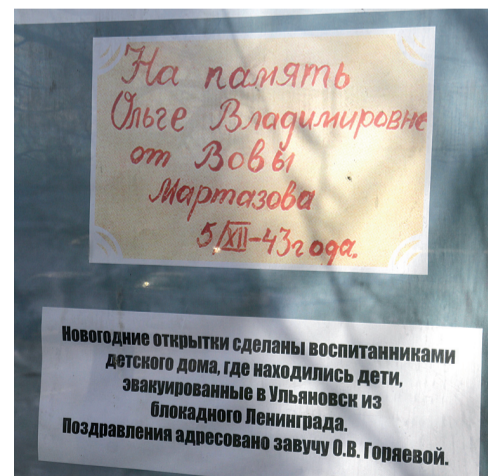 На память
Ольге Владимировне
от Вовы
Мартазова
5/XII-43 года.
Новогодние открытки сделаны воспитанниками
детского дома, где находились дети,
эвакуированные в Ульяновск из
блокадного Ленинграда.
Поздравления адресовано завучу О.В. Горяевой.